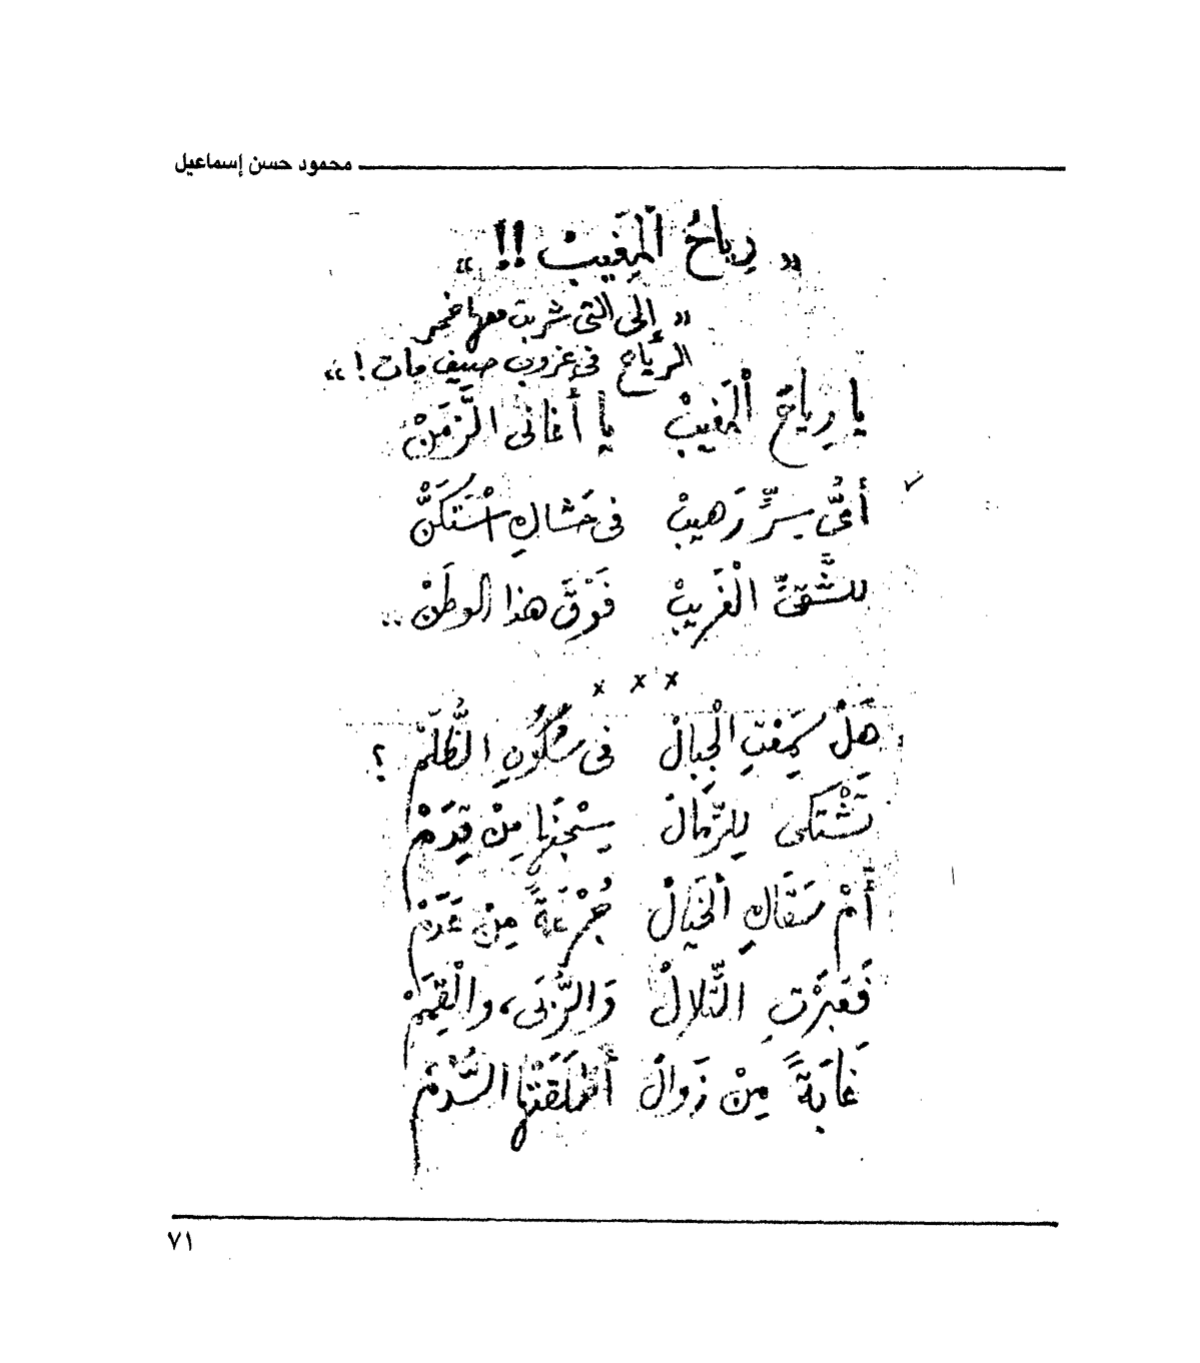 محمود حسن إسماعيل
« رِيَاحُ الْمَغِيبْ !! »
« إلى التى شربت معها خمر
الرياح فى غروب صيف مات ! »
يا رِياحَ الْمَغيبْ يا أَغانى الزَّمَنْ
أىُّ سِرٍّ رَهيبْ فى حَشاكِ اسْتَكَنّْ
للشَّقىِّ الْغَريبْ فَوْقَ هذا الوطَنْ ..
x x x
هَلْ سَمِعْتِ الْجِبالْ فى سُكُونِ الظُّلَمْ ؟
تَشْتَكى لِلرِّمالْ سِجْنَها مِنْ قِدَمْ
أَمْ سَقَاكِ الْخَيَالْ جُرْعَةً مِنْ عَدَمْ
فَعَبَرْتِ التِّلالْ وَالرُّبَى، والْقِمَمْ
غابَةً مِنْ زَوالْ أَطْلَقَتْها السُّدُمْ
٧١